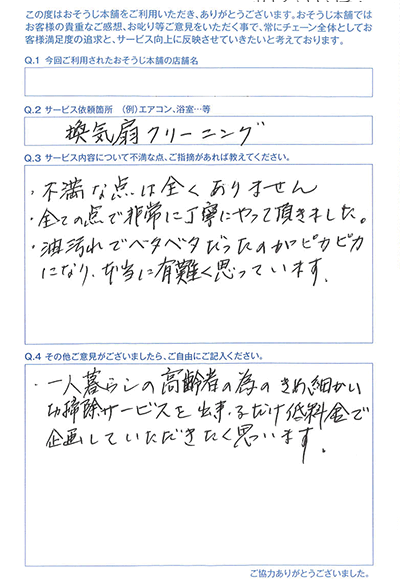 この度はおそうじ本舗をご利用いただき、ありがとうございます。おそうじ本舗では
お客様の貴重なご感想、お叱り等ご意見をいただく事で、常にチェーン全体としてお
客様満足度の追求と、サービス向上に反映させていきたいと考えております。
Q.1 今回ご利用されたおそうじ本舗の店舗名
Q.2 サービス依頼箇所 (例)エアコン、浴室…等
換気扇クリーニング
Q.3 サービス内容について不満な点、ご指摘があれば教えてください。
・不満な点は全くありません
・全ての点で非常に丁寧にやって頂きました。
・油汚れでベタベタだったのがピカピカ
になり、本当に有難く思っています。
Q.4 その他ご意見がございましたら、ご自由にご記入ください。
・一人暮らしの高齢者の為のきめ細かい
お掃除サービスを出来るだけ低料金で
企画していただきたく思います。
ご協力ありがとうございました。